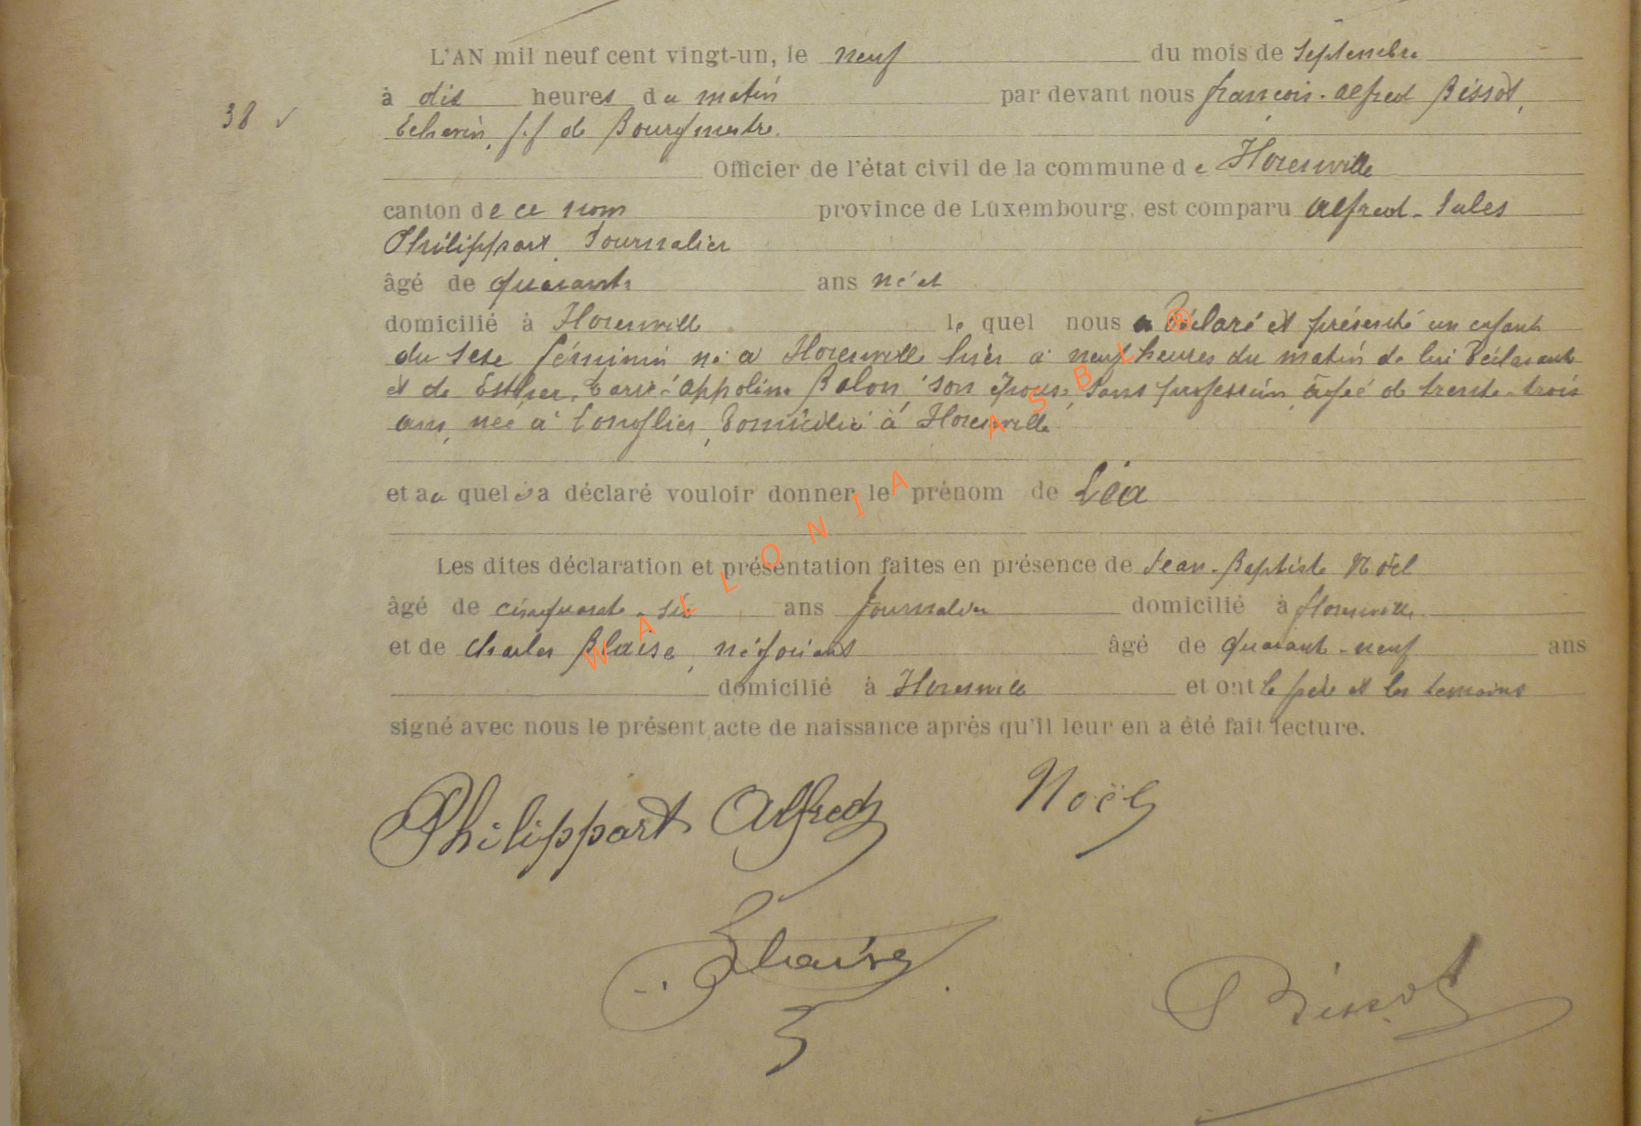 L'AN mil neuf cent vingt-un, le neuf du mois de Septembre
à dix heures du matin par devant nous françois-alfred Bissot,
38 Echevin, f.f de Bourgmestre.
Officier de l'état civil de la commune de Florenville
canton de ce nom province de Luxembourg, est comparu Alfred-Jules
Philippart, Journalier
âgé de quarante ans né et
domicilié à Florenville lequel nous a Déclaré et présenté un enfant
du sexe féminin né à Florenville hier à neuf heures du matin de lui Déclarant
et de Esther, appoline Balon son Epouse, sans profession, âgée de trente-trois
ans, née à Longlier, Domiciliée à Florenville
et auquel a déclaré vouloir donner le prénom de Léa
Les dites déclaration et présentation faites en présence de Jean-Baptiste Noël
âgé de cinquante-six ans Journalier domicilié à florenville
et de Charles Blaise, négociant âgé de quarante-neuf ans
domicilié à Florenville et ont le père et les témoins
signé avec nous le présent acte de naissance après qu'il leur en a été fait lecture.
Philippart Alfred Noël
Blaise
Bissot
WALLONIA ASBL ®